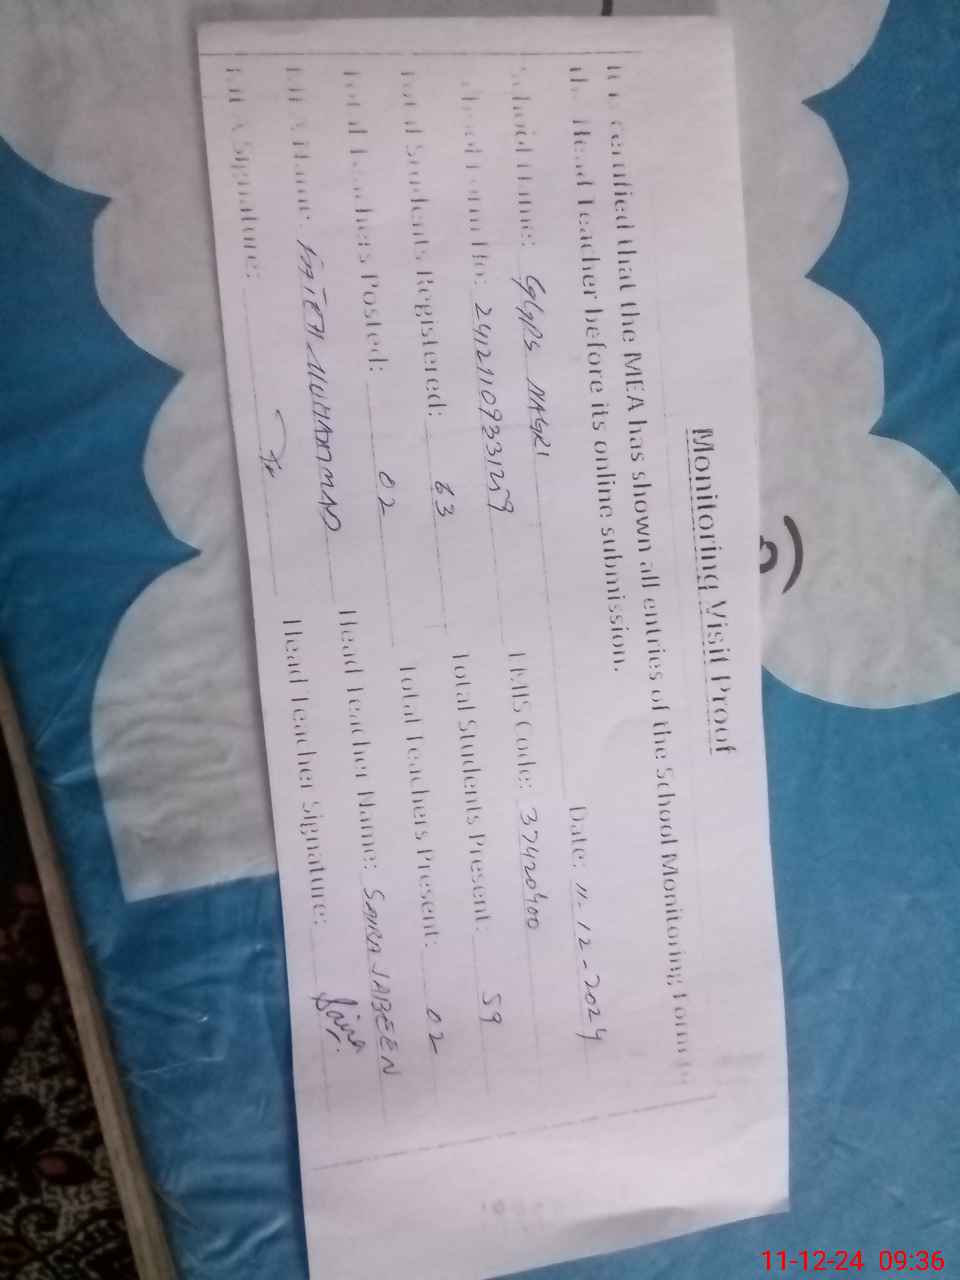 Monitoring Visit Proof
It is certified that the MEA has shown all entries of the School Monitoring Form to
the Head Teacher before its online submission.
Date: 11-12-2024
School Name: GGPS NAGRI
EMIS Code: 37420400
School Form No: 24121109331259
Total Students Registered: 63
Total Students Present: 59
Total Teachers Posted: 02
Total Teachers Present: 02
MEA Name: MUHAMMAD
Head Teacher Name: SAIRA JABEEN
MEA Signature:
Head Teacher Signature: Saira
11-12-24 09:36